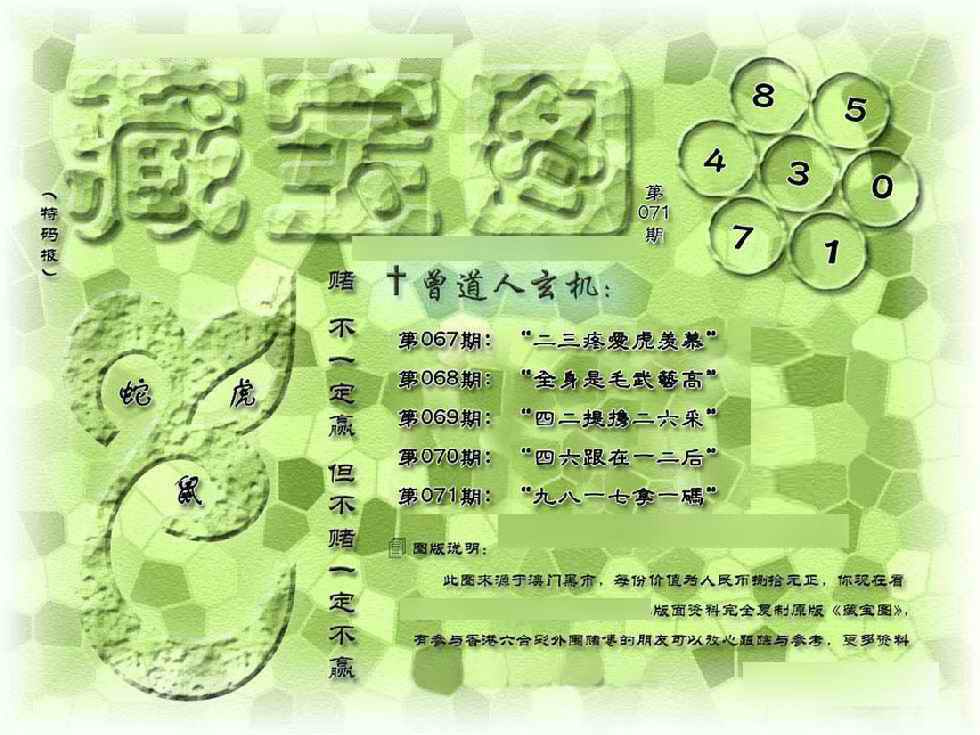 藏宝图
(特码报)
第
071
期
8
5
4
3
0
7
1
蛇
虎
鼠
赌不一定赢但不赌一定不赢
曾道人玄机：
第067期：“二三疼愛虎羡慕”
第068期：“全身是毛武藝高”
第069期：“四二提携二六采”
第070期：“四六跟在一二后”
第071期：“九八一七拿一碼”
图版说明：
此图来源于澳门黑市，每份价值为人民币捌拾元正，你现在看
版面资料完全复制原版《藏宝图》，
有参与香港六合彩外围赌博的朋友可以放心跟踪与参考，更多资料